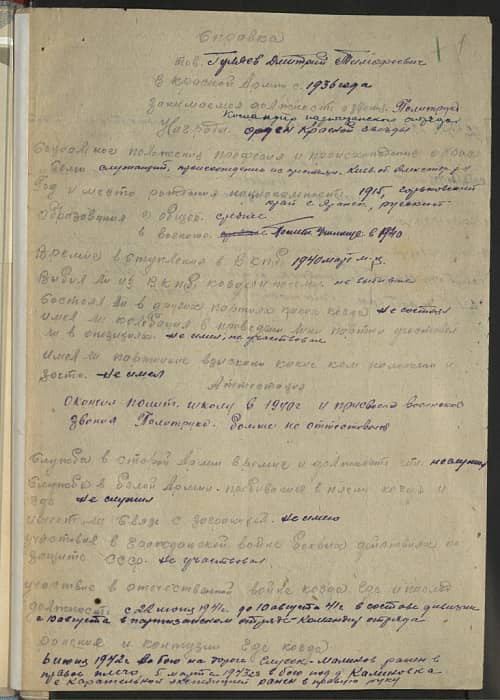 Справка
тов. Гуляев Дмитрий Тимофеевич
В Красной Армии с. 1936 года
занимаемая должность и звание. Политрук
Командир партизанского отряда
Награды. орден Красной звезды
Социальное положение профессия и происхождение
служащий, происхождение из
Год и место рождения национальность. 1915, Горьковский
край с. русский
Образования а) общее. среднее
в военное. Полит. Училище в 1940
Время вступления в ВКПб 1940 март м-ц.
Выбыл ли из ВКПб, когда и почему не выбывал
Состоял ли в других партиях каких когда Не состоял
Имел ли колебания в проведении линии партии участвовал
ли в опозициях. Не имел, не участвовал
Имел ли партийные взыскания какие кем наложены и
за что. Не имел
Аттестация
Окончил полит. школу в 1940г и присвоено военное
звания Политрука. больше не аттестовался
Служба в старой Армии время и должность не служил
Служба в белой Армии. пребывание в плену когда и
где Не служил
имеет ли связь с заграницей. Не имею
участвия в гражданской войне боевых действиях по
защите СССР. Не участвовал
участвие в отечественной войне когда где и какой
должности с 22 июня 1941г. до 10 августа 41г в составе дивизии
с 10 августа в партизанском отряде командир отряда
ранения и контузии где когда
6 июня 1942г. во бою на дороге Слуцк- ранен в
правое плечо. 5 марта 1943г в бою под Калиновка
с карательной экспедицией ранен в правую руку